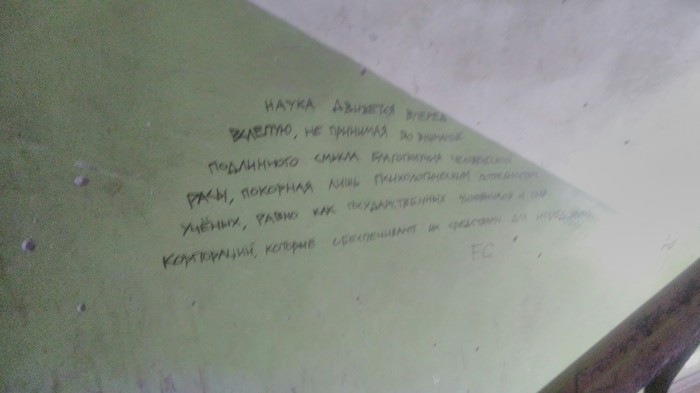 НАУКА ДВИЖЕТСЯ ВПЕРЕД
ВСЛЕПУЮ, НЕ ПРИНИМАЯ ВО ВНИМАНИЕ
ПОДЛИННОГО СМЫСЛА БЛАГОПОЛУЧИЯ ЧЕЛОВЕЧЕСКОЙ
РАСЫ, ПОКОРНАЯ ЛИШЬ ПСИХОЛОГИЧЕСКИМ ПОТРЕБНОСТЯМ
УЧЁНЫХ, РАВНО КАК ГОСУДАРСТВЕННЫХ ЧИНОВНИКОВ И
КОРПОРАЦИЙ, КОТОРЫЕ ОБЕСПЕЧИВАЮТ ИХ СРЕДСТВАМИ ДЛЯ ИССЛЕДОВАНИЙ
FC